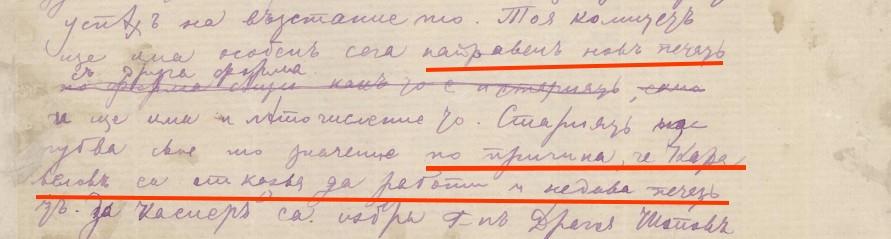 успѣхъ на възстание то. Тоя комитетъ
ще има особенъ сега направенъ новъ печатъ
съ друга форма
по форма сѫщи какъ то е и стариятъ, само
и ще има и лѣточисление то. Стариятъ
губва свое то значение по причина, че Кара
веловъ са отказва да работи и недава печатъ
тъ. За касиеръ са избра Г-нъ Драгия Шоповъ